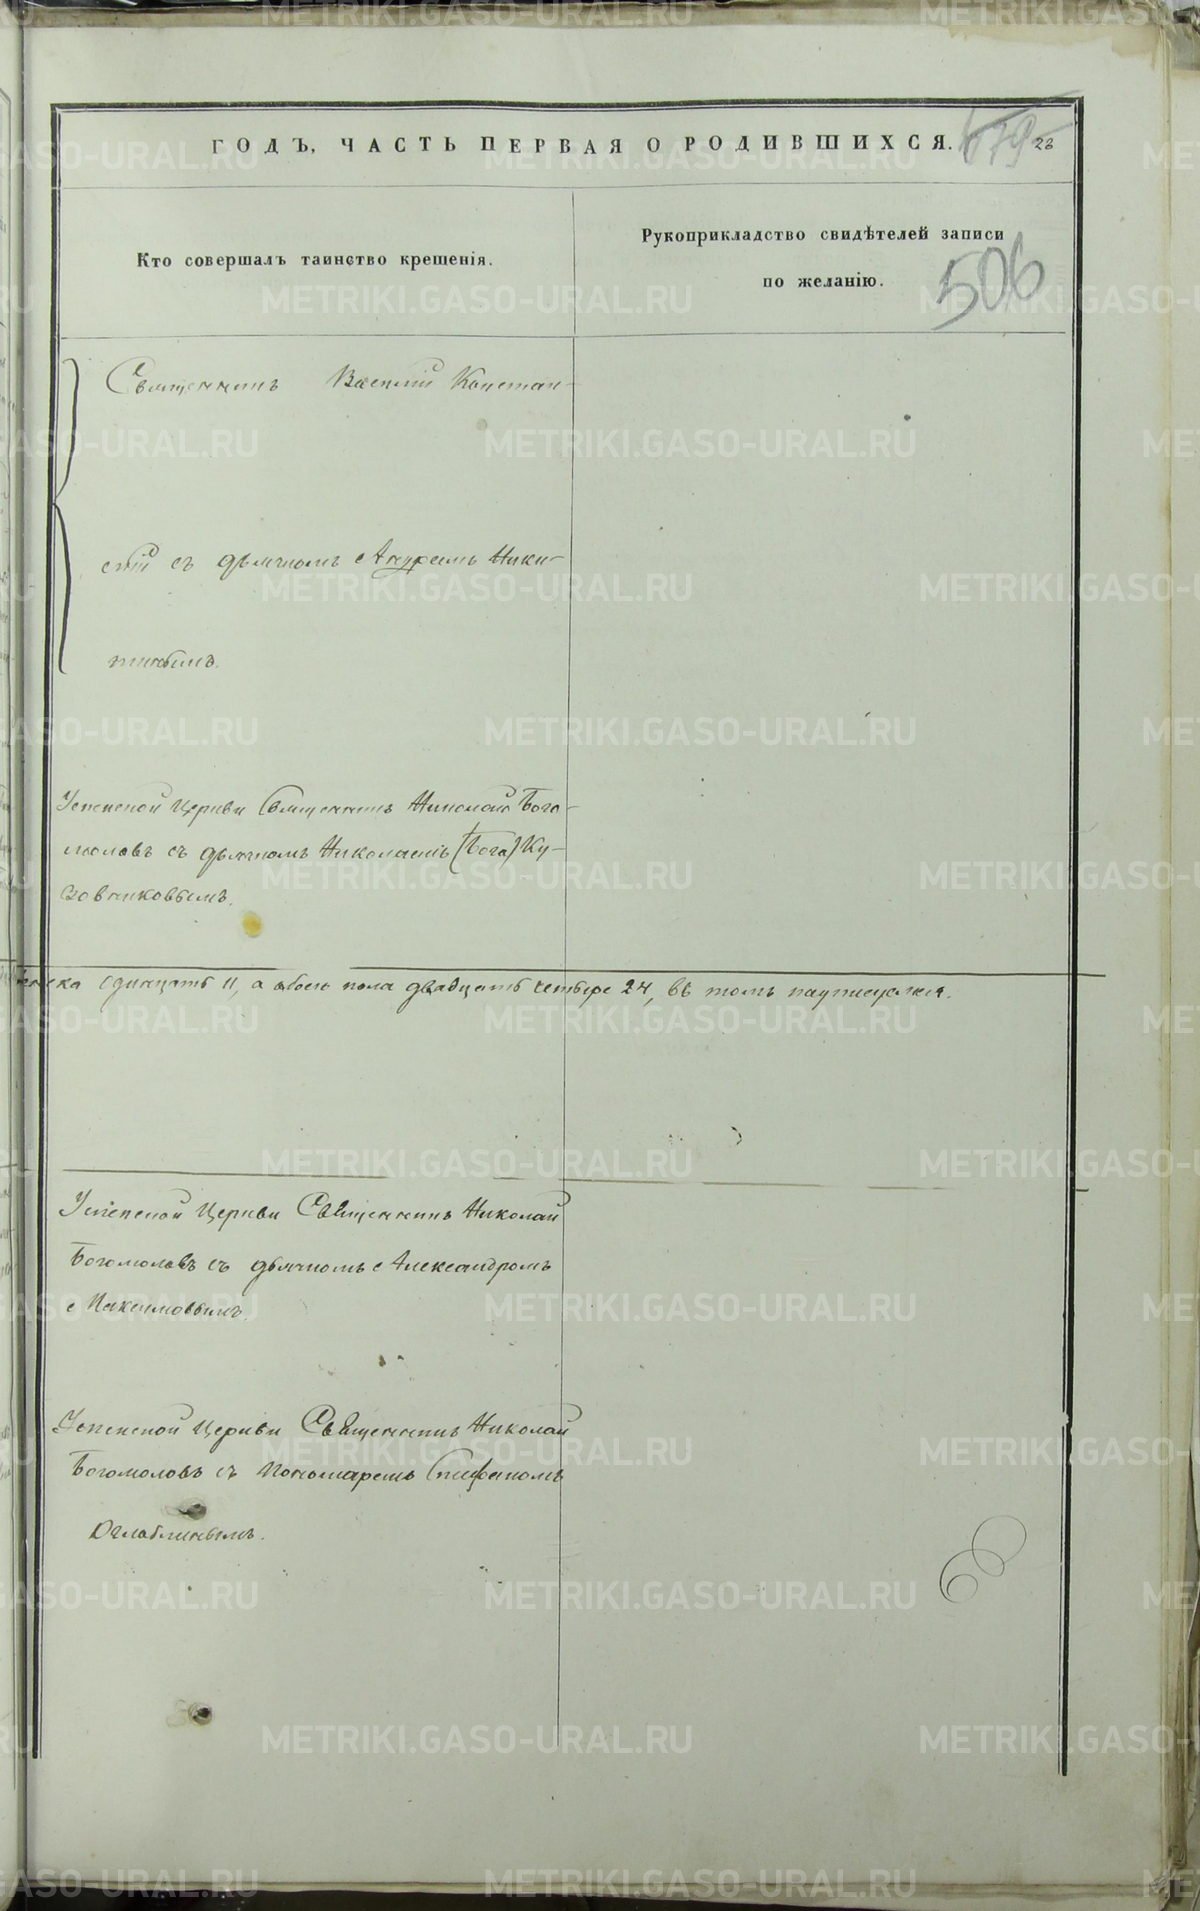 ГОДЪ, ЧАСТЬ ПЕРВАЯ О РОДИВШИХСЯ.
179 23
Кто совершалъ таинство крещенія.
Рукоприкладство свидѣтелей записи
по желанію.
506
Священникъ Василій Констан-
с дьячкомъ Андреемъ Ники-
тинымъ.
Успенской Церкви Священникъ Николай Бого-
моловъ съ дьячкомъ Николаемъ (Бога) Ку-
зовниковымъ.
одинацать 11, а обоего пола двадцать четыре 24, въ томъ подписуемся.
Успенской Церкви Священникъ Николай
Богомоловъ съ дьячкомъ Александромъ
Максимовымъ.
Успенской Церкви Священникъ Николай
Богомоловъ съ Пономаремъ Стефаномъ
Оглоблинымъ.
METRIKI.GASO-URAL.RU